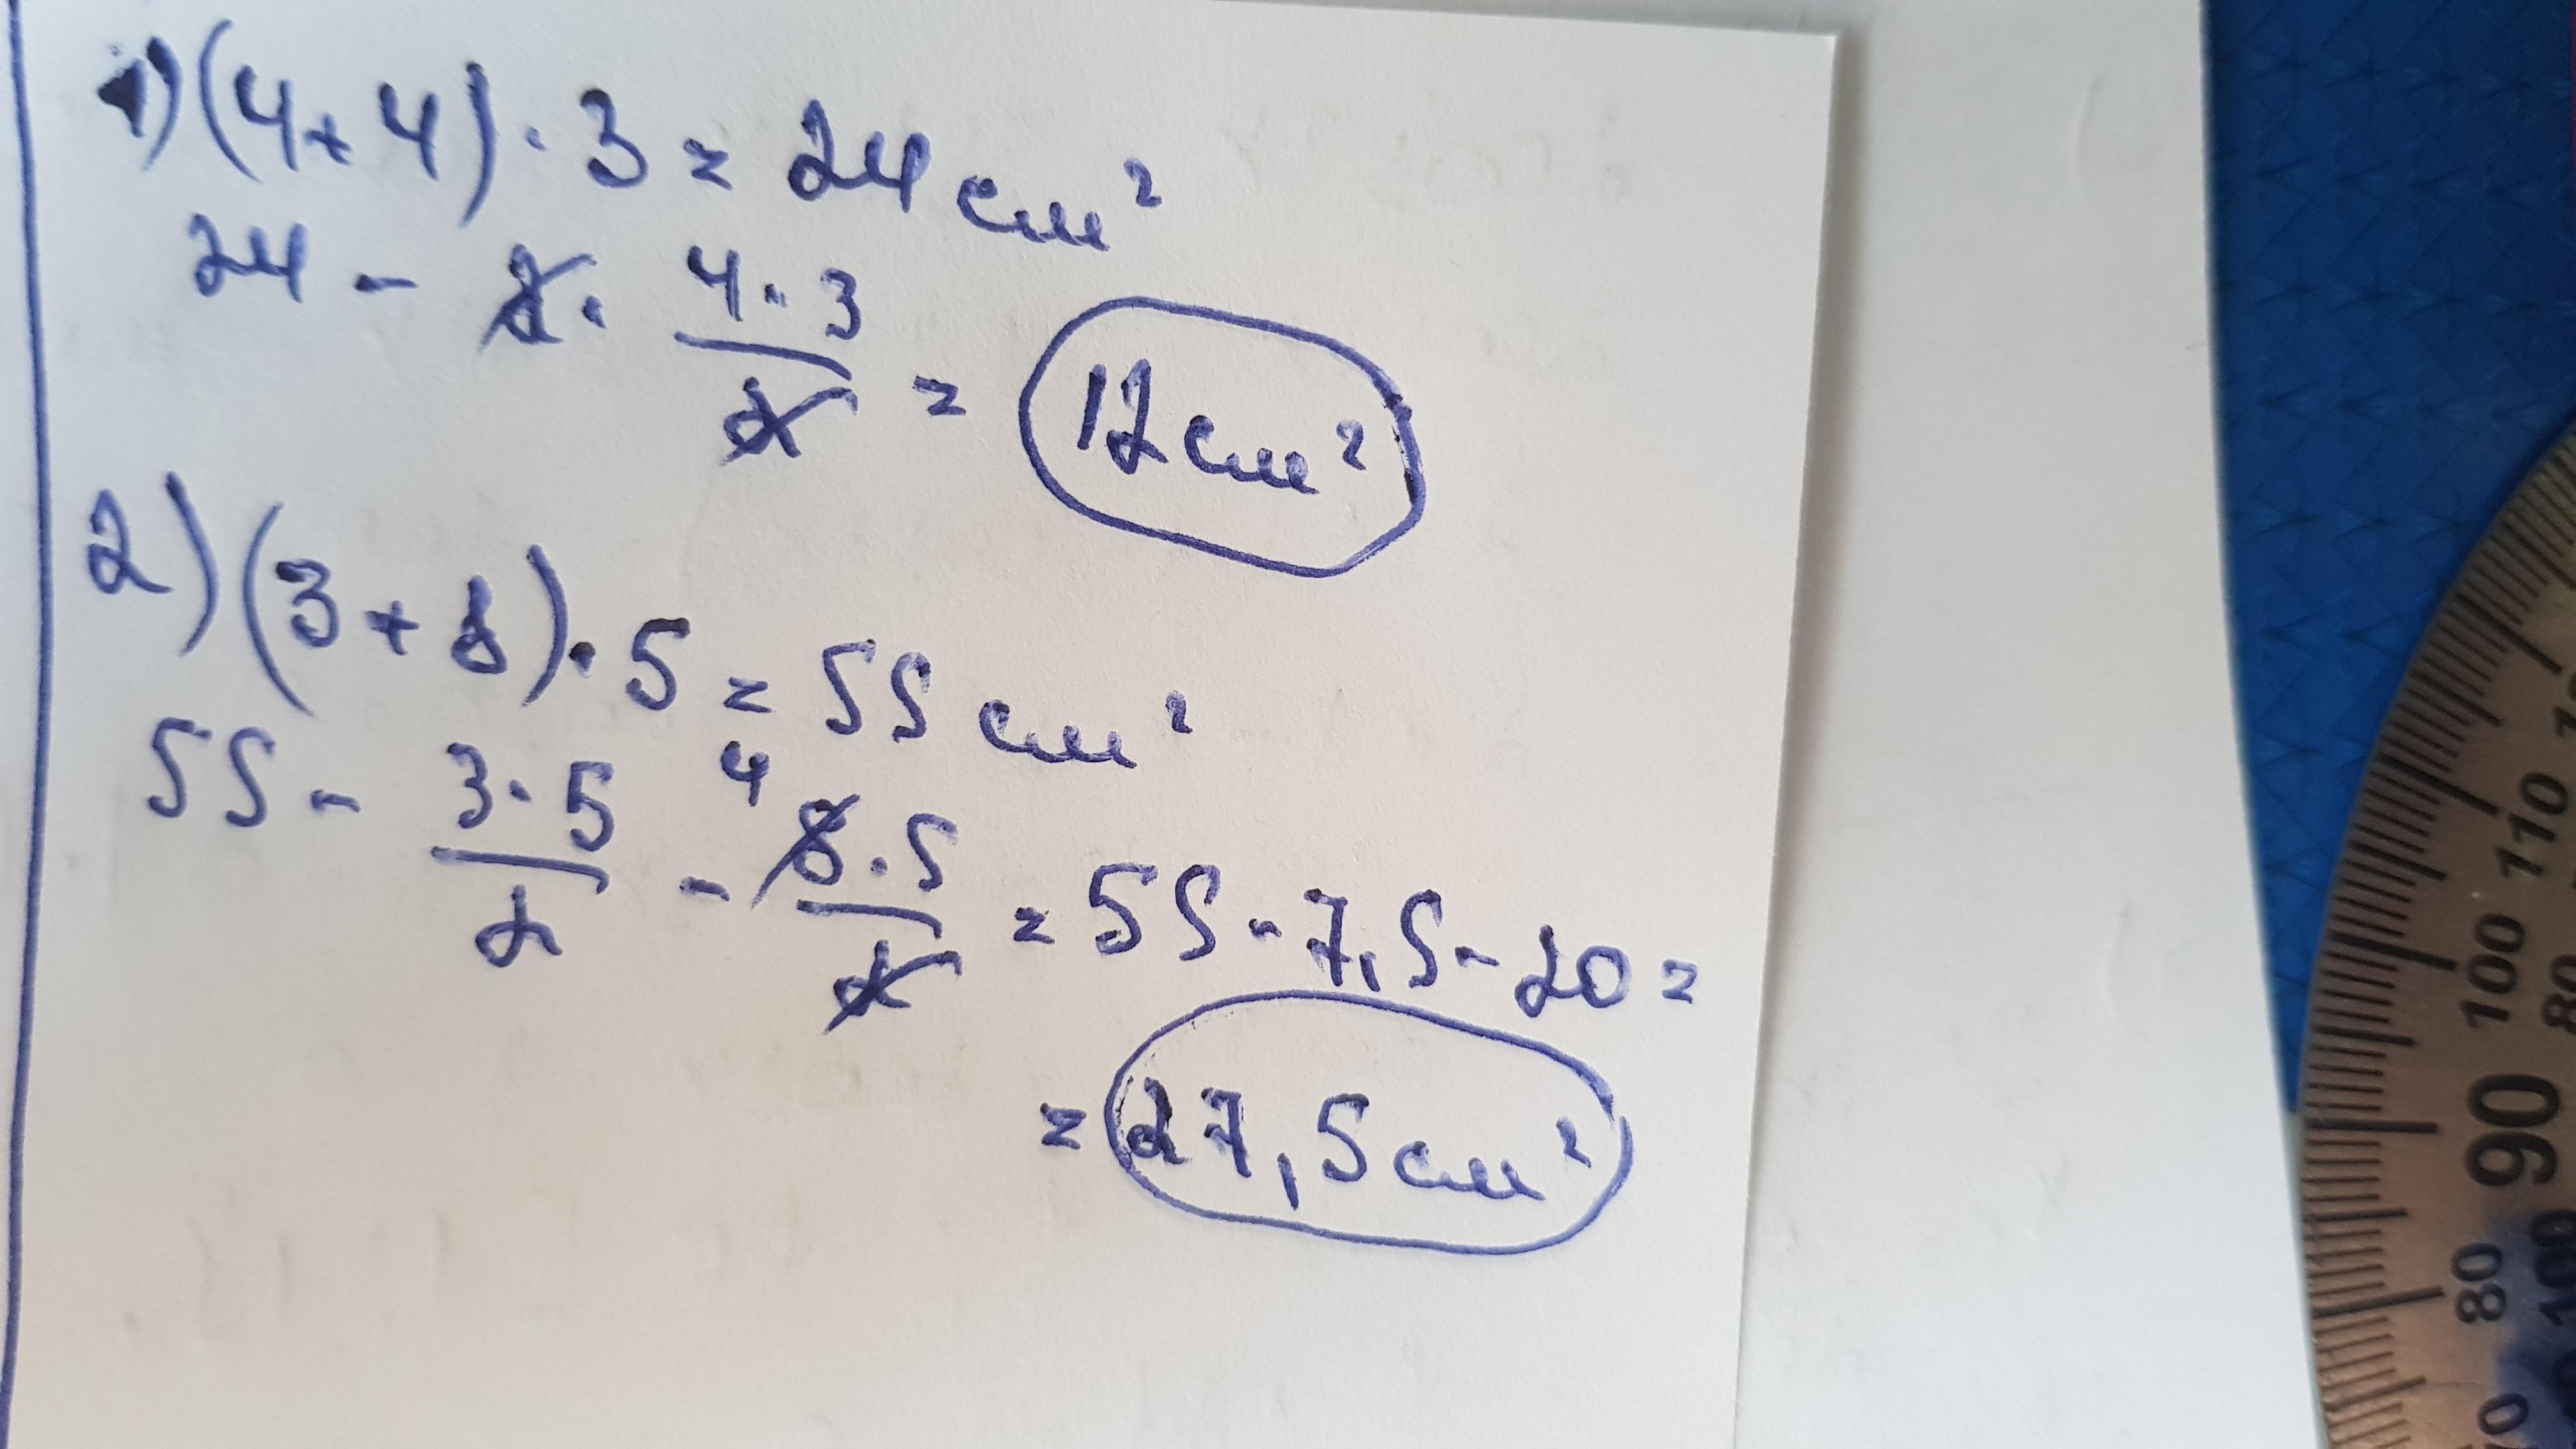 1) (4+4)·3 = 24 см²
24 - 2· 4·3/2 = 12 см²
2) (3+8)·5 = 55 см²
55 - 3·5/2 - 4 8·5/2 = 55-7,5-20 =
= 27,5 см²
110
100
80
90
100
80